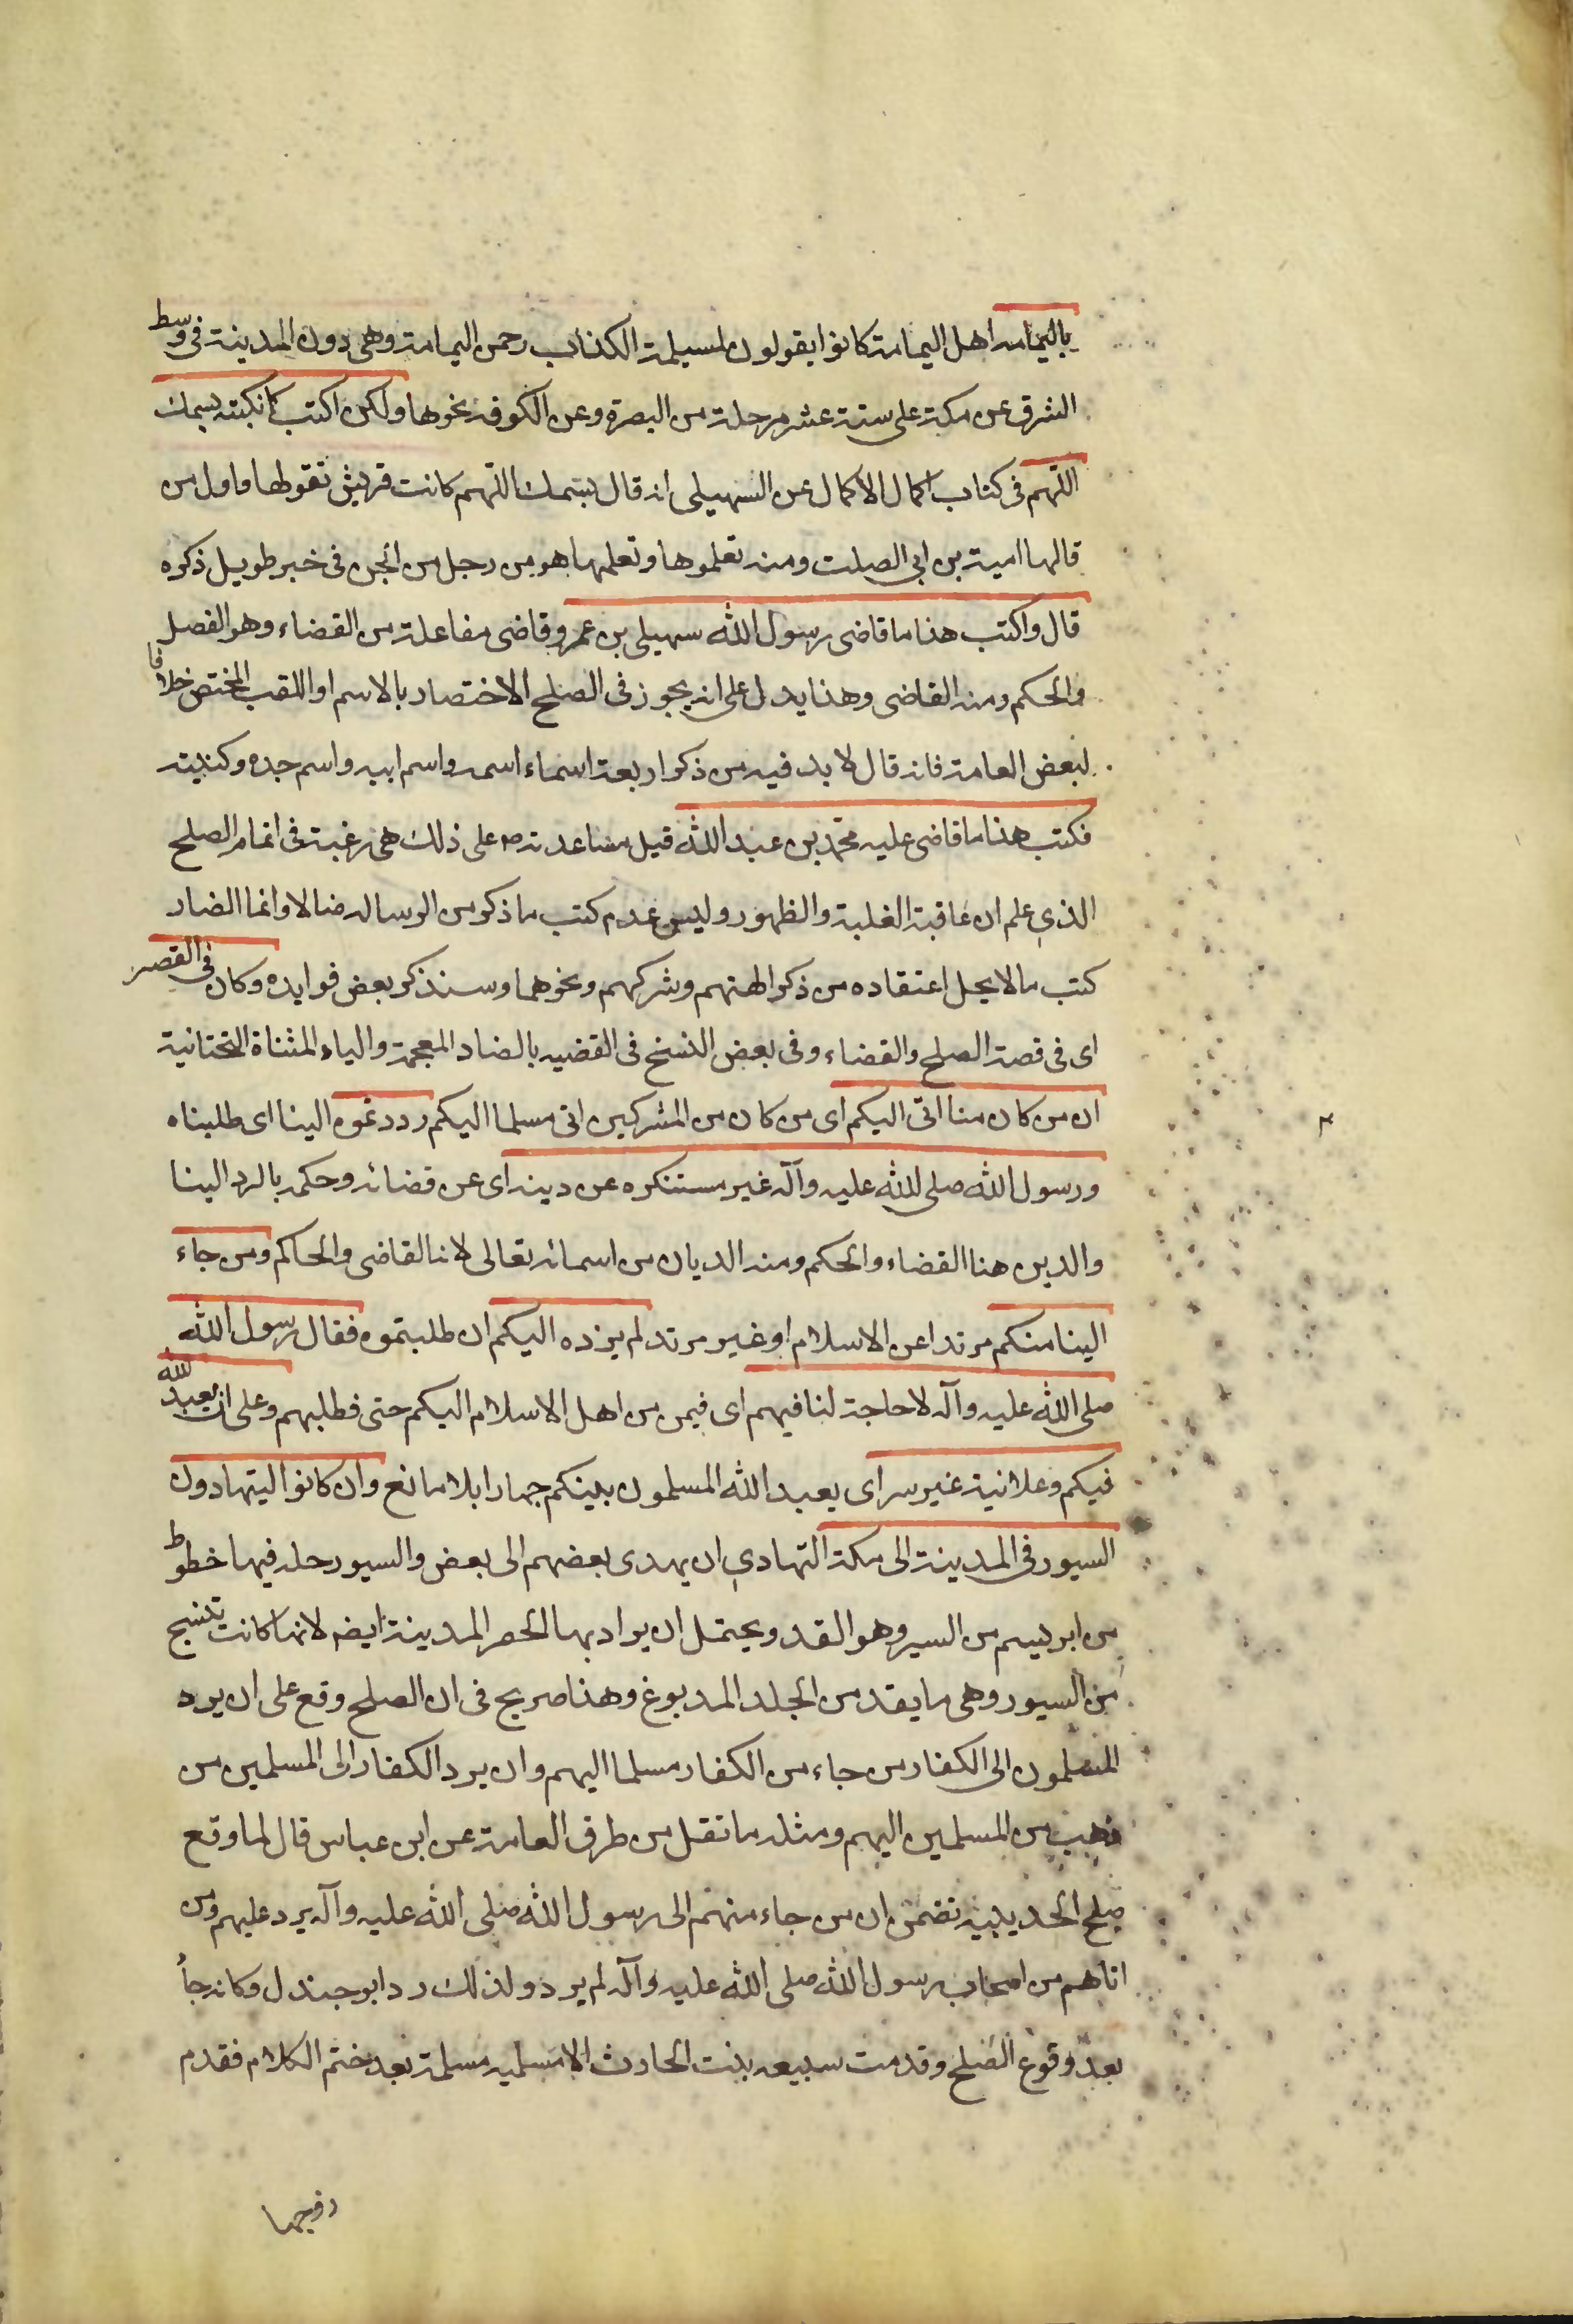 باليمامه اهل اليمامة كانوا يقولون لمسيلمة الكذاب رحمن اليمامة وهى دون المدينة فى وسط
الشرق عن مكة على ستة عشر مرحلة من البصرة وعن الكوفه نحوها ولكن اكتب كما نكتبه بسمك
اللهم فى كتاب اكمال الاكمال عن السهيلى انه قال بسمك اللهم كانت قريش تقولها واول من
قالها امية بن ابى الصلت ومنه تعلموها وتعلمها هو من رجل من الجن فى خبر طويل ذكره
قال واكتب هذا ما قاضى رسول الله سهيلى بن عمرو قاضى مفاعلة من القضاء وهو الفصل
والحكم ومنه القاضى وهذا يدل على انه يجوز فى الصلح الاختصار بالاسم او اللقب المختص خلافا
لبعض العامة فانه قال لا بد فيه من ذكر اربعة اسماء اسمه واسم ابيه واسم جده وكنيته
فكتب هذا ما قاضى عليه محمد بن عبد الله قيل مساعدته ص على ذلك هى رغبة فى اتمام الصلح
الذى علم ان عاقبة الغلبة والظهور وليس عدم كتب ما ذكر من الرساله ضالا وانما الضار
كتب ما لا يحل اعتقاده من ذكر الهتهم وشركهم ونحوهما وسنذكر بعض فوايده وكان فى القصر
اى فى قصة الصلح والقضاء وفى بعض النسخ فى القضيه بالضاد المعجمة والياء المثناة التحتانية
ان من كان منا اتى اليكم اى من كان من المشركين اتى مسلما اليكم رددتموه الينا اى طلبناه
ورسول الله صلى الله عليه وآله غير مستنكره عن دينه اى عن قضائه وحكمه بالرد الينا
والدين هنا القضاء والحكم ومنه الديان من اسمائه تعالى لانا القاضى والحاكم ومن جاء
الينا منكم مرتدا عن الاسلام او غير مرتد لم نرده اليكم ان طلبتموه فقال رسول الله
صلى الله عليه وآله لا حاجة لنا فيهم اى فيمن من اهل الاسلام اليكم حتى فطلبهم وعلى ان يعبد الله
فيكم وعلانية غير سر اى يعبد الله المسلمون بينكم جهارا بلا مانع وان كانوا ليتهادون
السيور فى المدينة الى مكة التهادى ان يهدى بعضهم الى بعض والسيور حله فيها خطوط
من ابريسم من السير وهو القد ويحتمل ان يراد بها الحصر المدينة ايضه لانها كانت تنسج
من السيور وهى ما يقد من الجلد المدبوغ وهذا صريح فى ان الصلح وقع على ان يرد
المسلمون الى الكفار من جاء من الكفار مسلما اليهم وان يرد الكفار الى المسلمين من
ذهب من المسلمين اليهم ومثله ما نقل من طرق العامة عن ابن عباس قال لما وقع
صلح الحديبيه تضمن ان من جاء منهم الى رسول الله صلى الله عليه وآله يرد عليهم ومن
اتاهم من اصحاب رسول الله صلى الله عليه وآله لم يرد ولذلك رد ابو جندل وكان جأ
بعد وقوع الصلح وقدمت سبيعه بنت الحارث الاسلميه مسلمة بعد ختم الكلام فقدم
زوجها